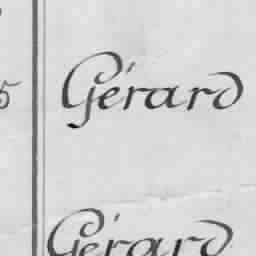 5 Gérard
Gérard